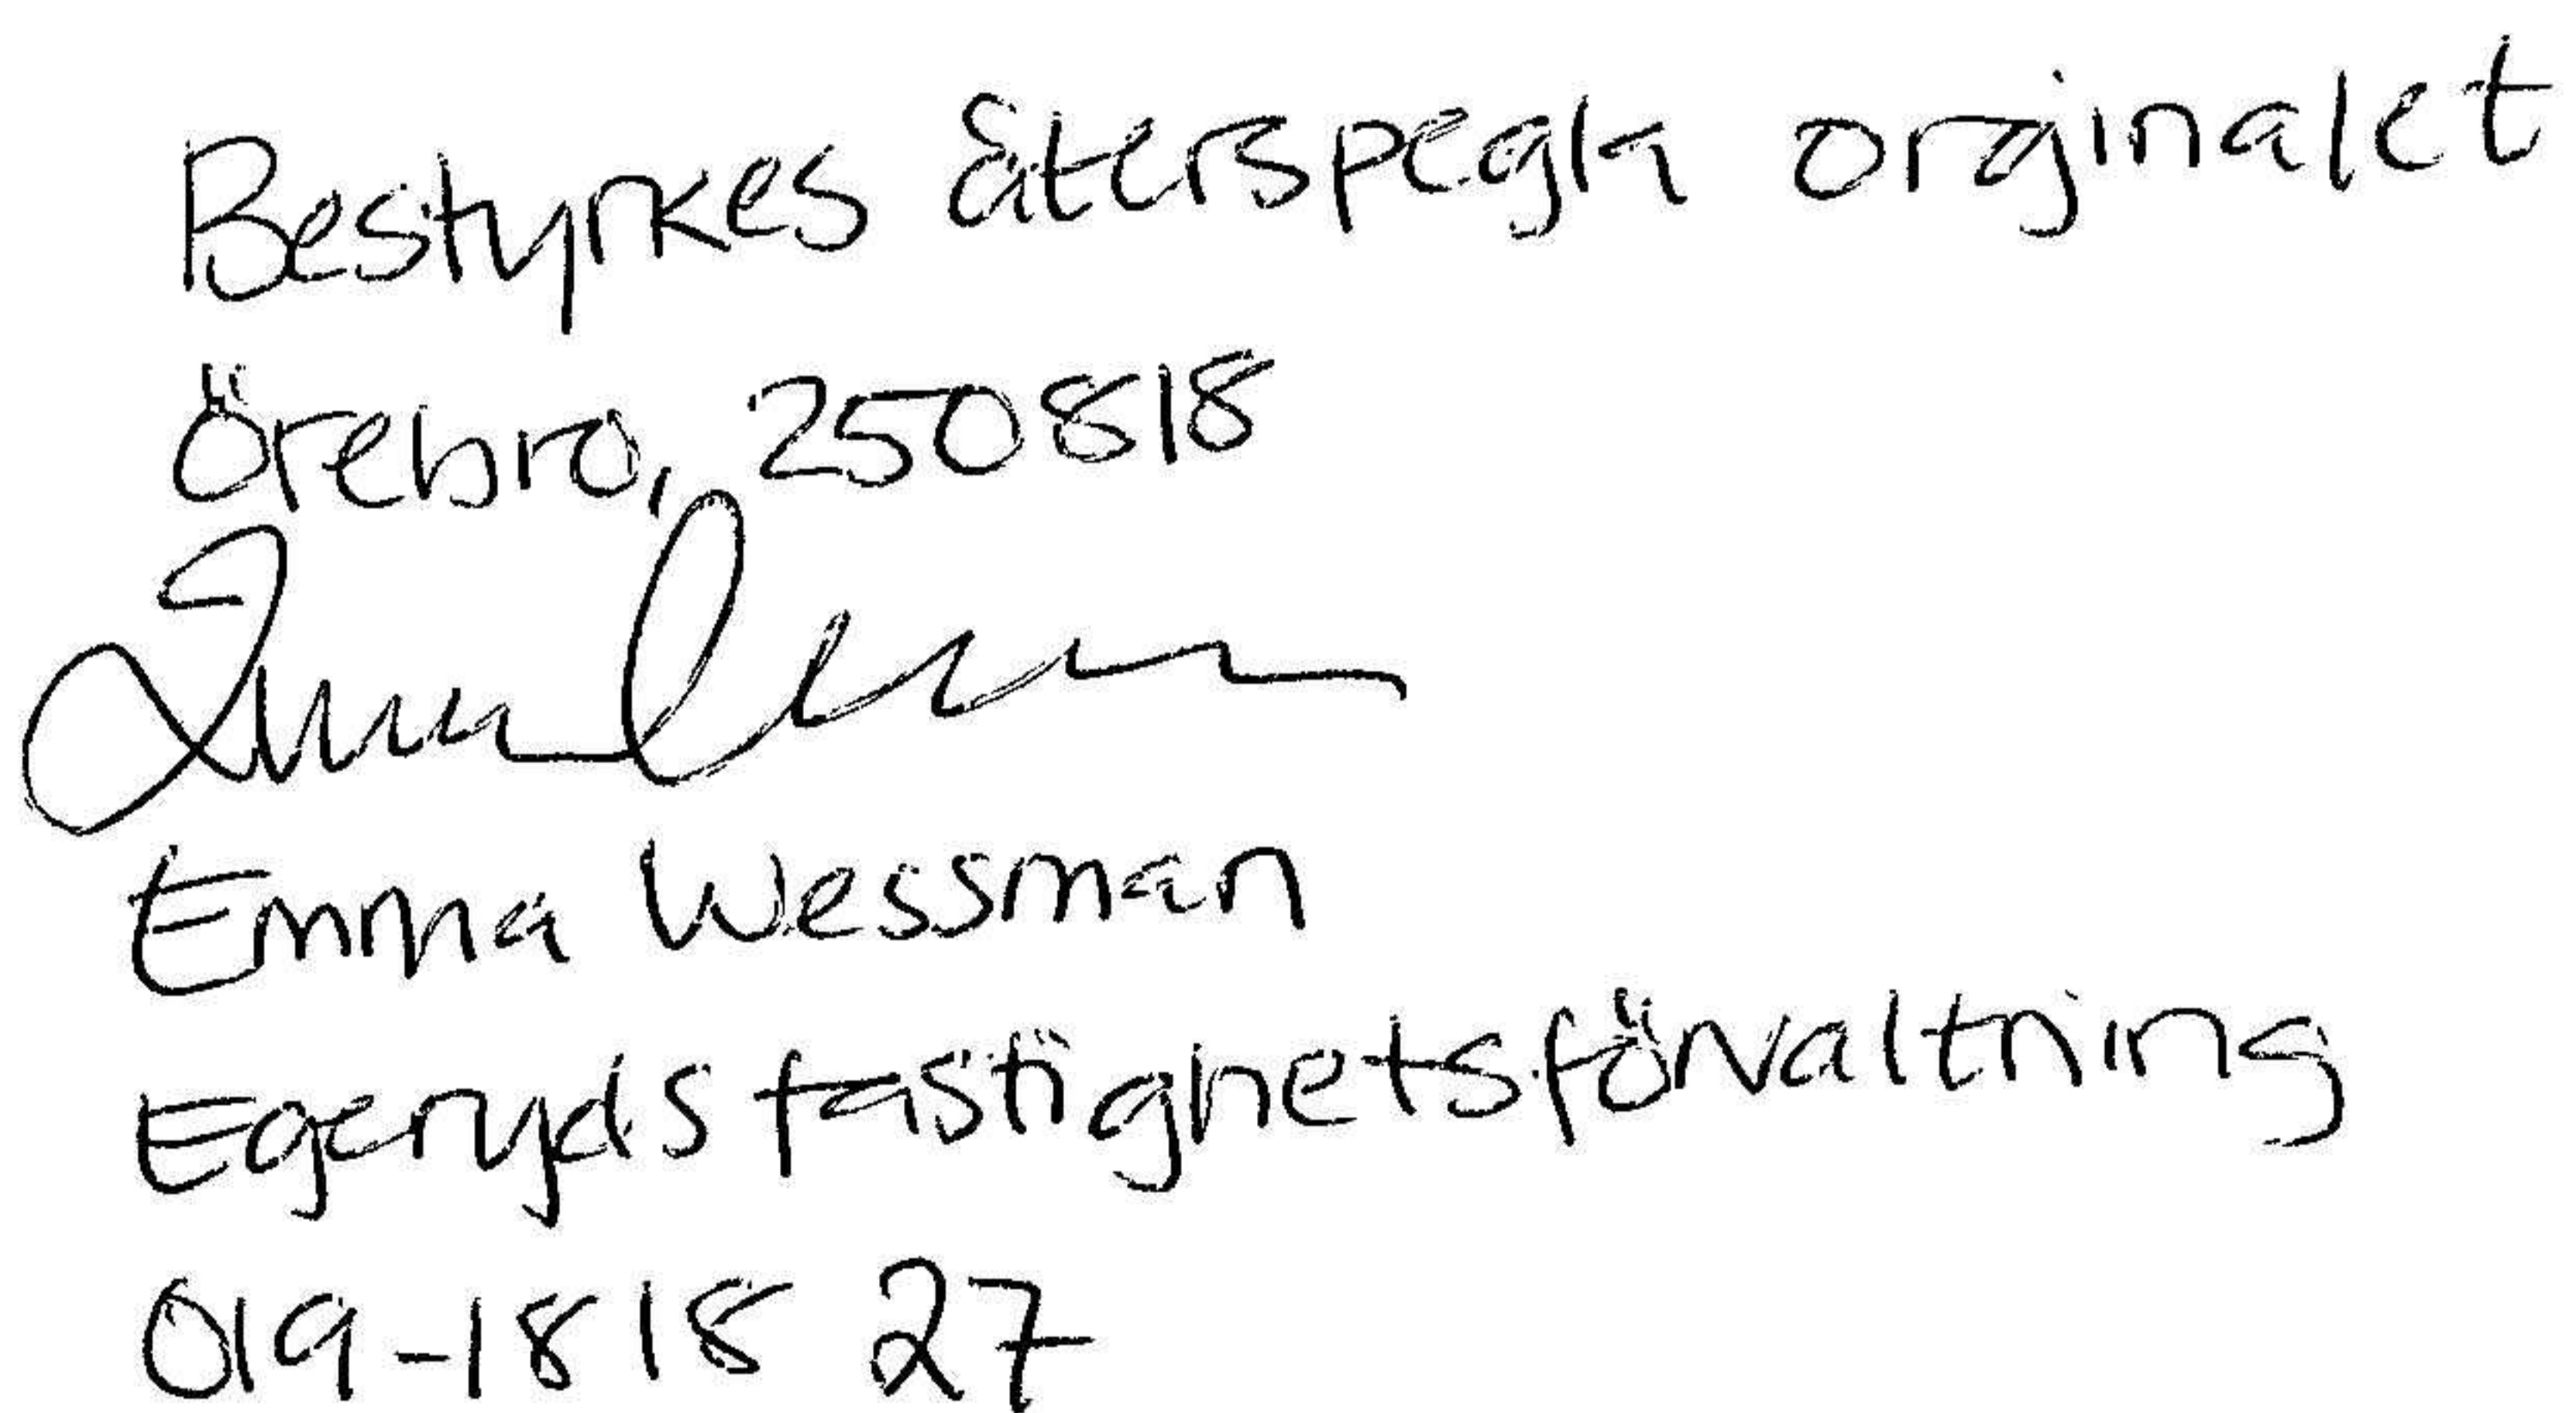 Bestyrkes återspegla orginalet
Örebro, 250818
Emma Wessman
Egeryds fastighetsförvaltning
019-1818 27